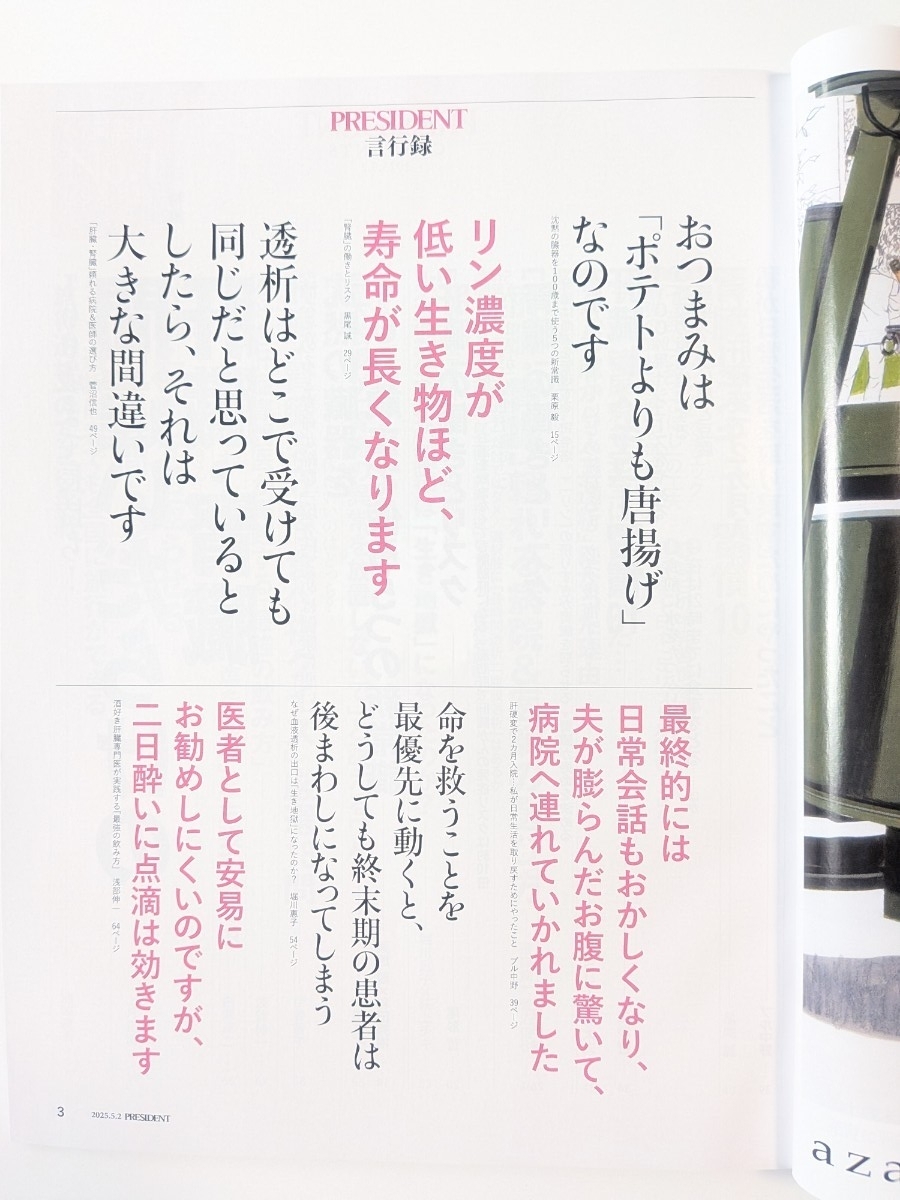 PRESIDENT
言行録
おつまみは
「ポテトよりも唐揚げ」
なのです
沈黙の臓器を100歳まで使う5つの新常識 栗原 毅 15ページ
リン濃度が
低い生き物ほど、
寿命が長くなります
「腎臓」の働きとリスク 黒尾 誠 29ページ
透析はどこで受けても
同じだと思っていると
したら、それは
大きな間違いです
「肝臓・腎臓」頼れる病院&医師の選び方 菅沼信也 49ページ
最終的には
日常会話もおかしくなり、
夫が膨らんだお腹に驚いて、
病院へ連れていかれました
肝硬変で2カ月入院…私が日常生活を取り戻すためにやったこと ブル中野 39ページ
命を救うことを
最優先に動くと、
どうしても終末期の患者は
後まわしになってしまう
なぜ血液透析の出口は「生き地獄」になったのか? 堀川惠子 54ページ
医者として安易に
お勧めしにくいのですが、
二日酔いに点滴は効きます
酒好き肝臓専門医が実践する「最強の飲み方」 浅部伸一 64ページ
3 2025.5.2 PRESIDENT
aza